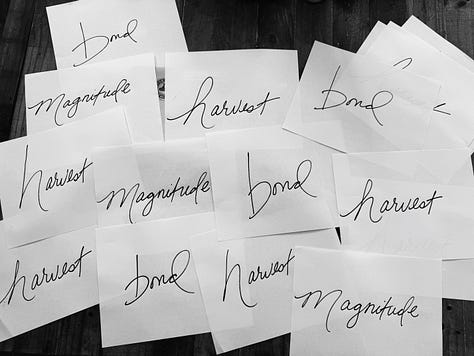 bond
Magnitude
harvest
bond
harvest
Magnitude
bond
harvest
harvest
bond
harvest
Magnitude